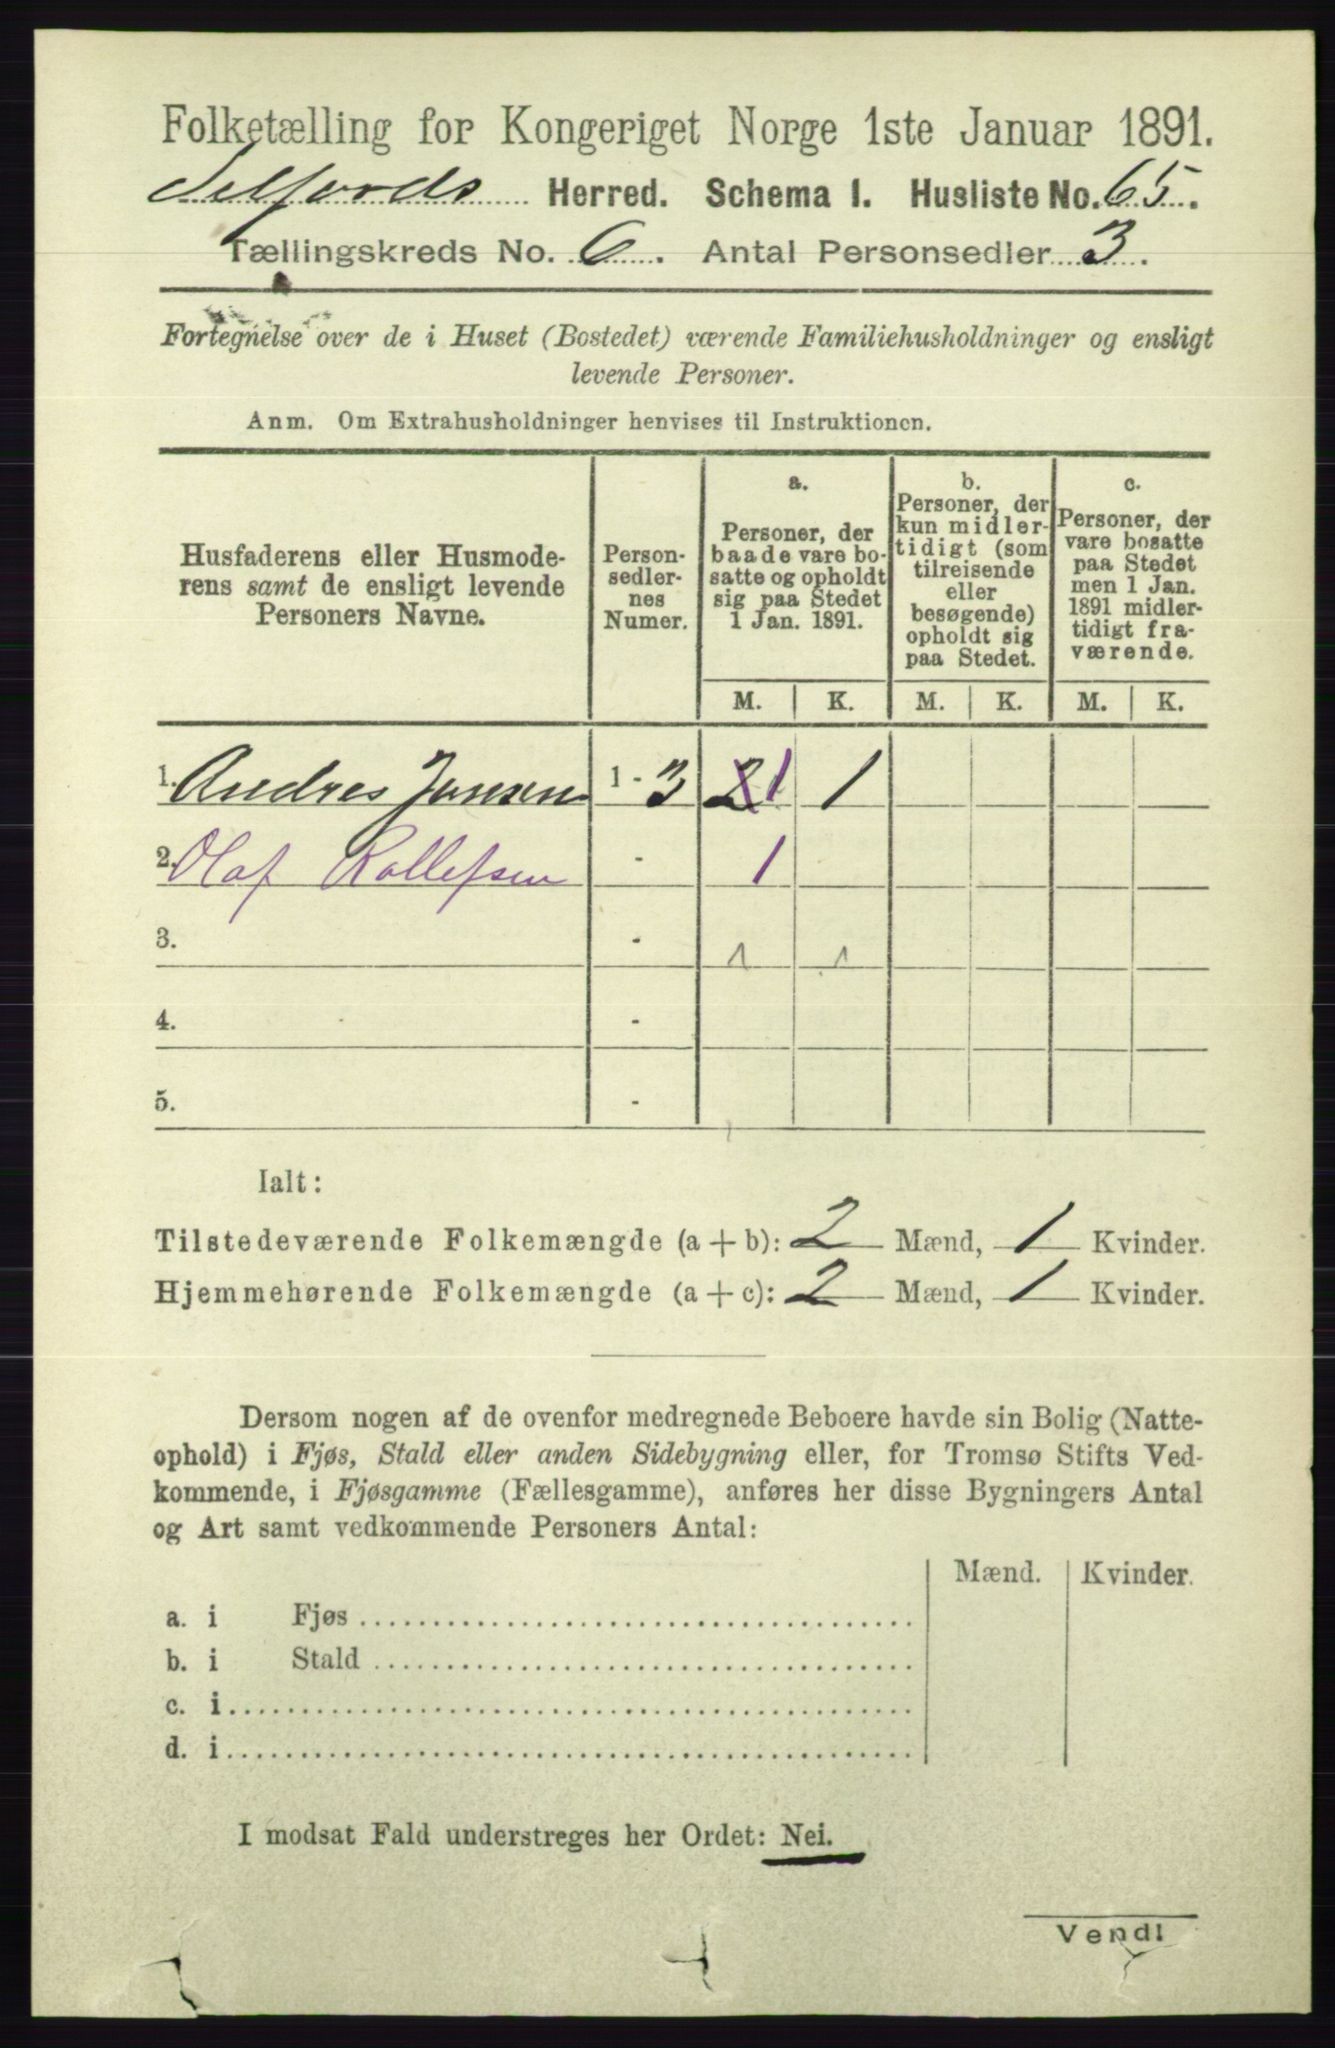 Folketælling for Kongeriget Norge 1ste Januar 1891.
Selfjords Herred. Schema I. Husliste No. 65.
Tællingskreds No. 6. Antal Personsedler 3.
Fortegnelse over de i Huset (Bostedet) værende Familiehusholdninger og ensligt
levende Personer.
Anm. Om Extrahusholdninger henvises til Instruktionen.
Husfaderens eller Husmode-
rens samt de ensligt levende
Personers Navne.
Person-
sedler-
nes
Numer.
a.
Personer, der
baade vare bo-
satte og opholdt
sig paa Stedet
1 Jan. 1891.
b.
Personer, der
kun midler-
tidigt (som
tilreisende
eller
besøgende)
opholdt sig
paa Stedet.
c.
Personer, der
vare bosatte
paa Stedet
men 1 Jan.
1891 midler-
tidigt fra-
værende.
M. K. M. K. M. K.
1. Andres Jansen 1 - 3 2 1 1
2. Olaf Rollefsen - 1
3. - 1 1
4. -
5. -
Ialt:
Tilstedeværende Folkemængde (a + b): 2 Mænd, 1 Kvinder.
Hjemmehørende Folkemængde (a + c): 2 Mænd, 1 Kvinder.
Dersom nogen af de ovenfor medregnede Beboere havde sin Bolig (Natte-
ophold) i Fjøs, Stald eller anden Sidebygning eller, for Tromsø Stifts Ved-
kommende, i Fjøsgamme (Fællesgamme), anføres her disse Bygningers Antal
og Art samt vedkommende Personers Antal:
Mænd. Kvinder.
a. i Fjøs
b. i Stald
c. i
d. i
I modsat Fald understreges her Ordet: Nei.
Vend!